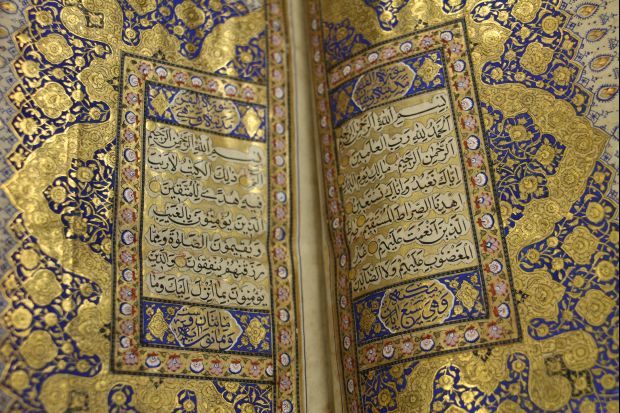 بسم الله الرحمن الرحيم
الحمد لله رب العالمين
الرحمن الرحيم ملك يوم الدين
اياك نعبد واياك نستعين
اهدنا الصراط المستقيم صراط
الذين انعمت عليهم غير
المغضوب عليهم ولا الضالين
مكية
وهي سبع آيات
بسم الله الرحمن الرحيم
الم ذلك الكتب لا ريب
فيه هدى للمتقين
الذين يؤمنون بالغيب
ويقيمون الصلوة ومما
رزقنهم ينفقون والذين
يؤمنون بما انزل اليك وما
مائتان وست
وثمانون آيات